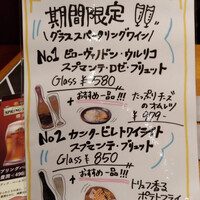 期間限定
\グラススパークリングワイン/
No1 ピューヴァ・ドン・ウルリコ
スプマンテ・ロゼ・ブリュット
Glass ¥580
+ おすすめ一品!!!
たっぷりチーズ
のオムレツ
¥979-
No2 カンタ・ビレトワイライト
スプマンテ・ブリュット
Glass ¥850
+ おすすめ一品!!!
トリュフ香る
ポテトフライ